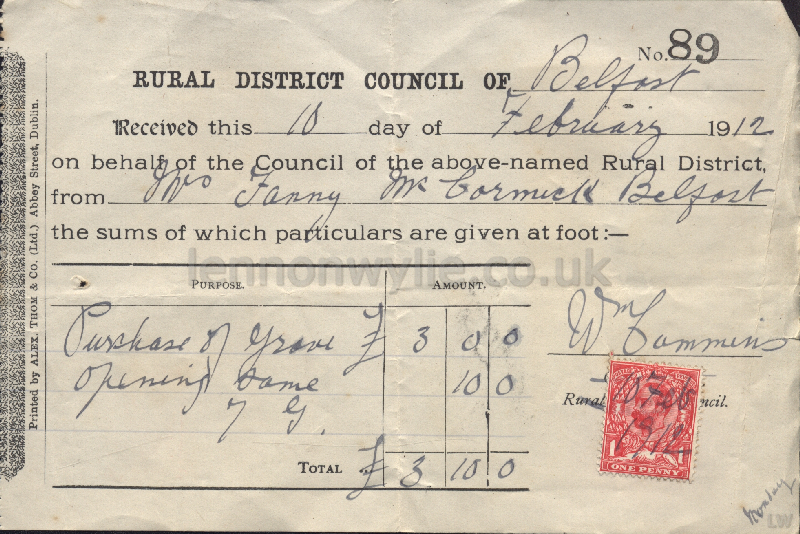 No. 89
RURAL DISTRICT COUNCIL OF Belfast
Received this 10 day of February 1912
on behalf of the Council of the above-named Rural District,
from Mrs Fanny McCormick Belfast
the sums of which particulars are given at foot:—
lennonwylie.co.uk
PURPOSE. AMOUNT.
Purchase of Grave £ 3 0 0
Opening same 10 0
7 G.
TOTAL .. £ 3 10 0
Wm Cummins
Rural ncil.
10 Feb
1912
1 1
ONE PENNY
Monday
LW
Printed by ALEX. THOM & CO. (Ltd.) Abbey Street, Dublin.